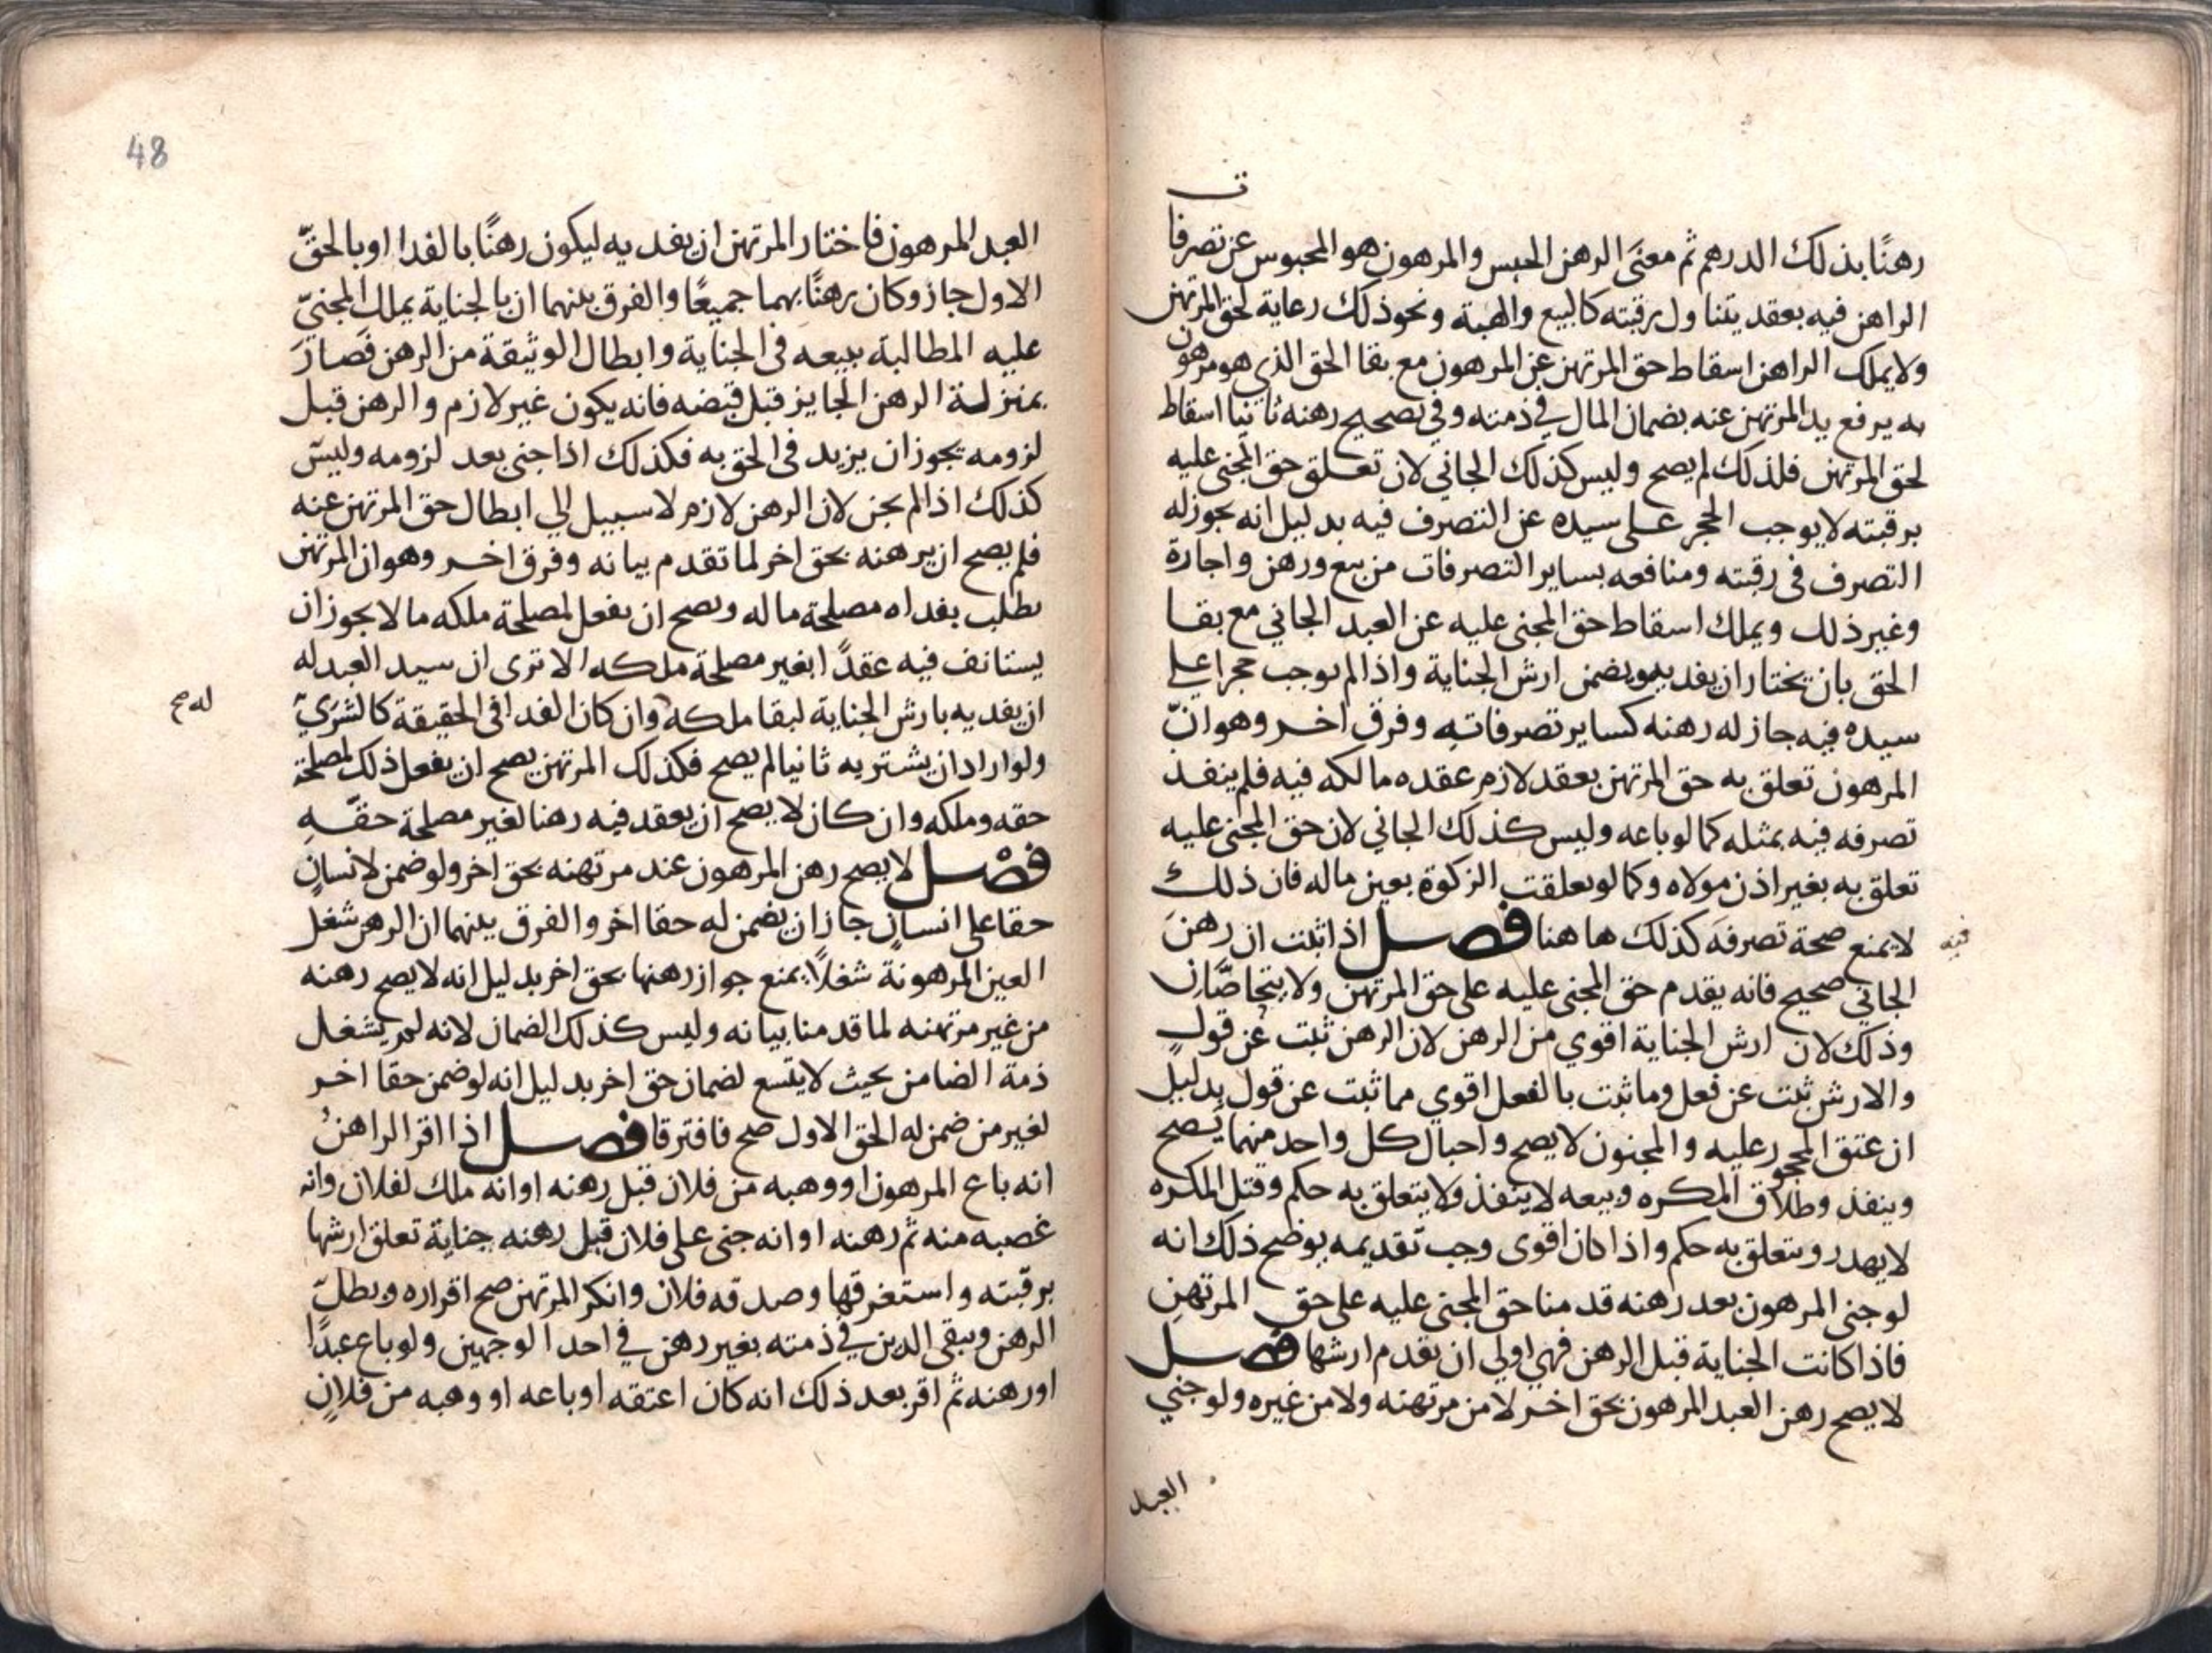 رهنًا بذلك الدرهم ثم معنى الرهن الحبس والمرهون هو المحبوس عن تصرفات
الراهن فيه بعقد يتناول رقبته كالبيع والهبة ونحو ذلك رعاية لحق المرتهن
ولا يملك الراهن اسقاط حق المرتهن عن المرهون مع بقا الحق الذي هو مرهون
به يرفع يد المرتهن عنه بضمان المال في ذمته وفي تصحيح رهنه ثانيا اسقاط
لحق المرتهن فلذلك لم يصح وليس كذلك الجاني لان تعلق حق المجنى عليه
برقبته لا يوجب الحجر على سيده عن التصرف فيه بدليل انه يجوز له
التصرف في رقبته ومنافعه بساير التصرفات من بيع ورهن واجارة
وغير ذلك ويملك اسقاط حق المجنى عليه عن العبد الجاني مع بقا
الحق بان يختار ان يفديه ويضمن ارش الجناية واذا لم يوجب حجرا على
سيده فيه جاز له رهنه كساير تصرفاته وفرق اخر وهو انّ
المرهون تعلق به حق المرتهن بعقد لازم عقده مالكه فيه فلم ينفد
تصرفه فيه بمثله كما لو باعه وليس كذلك الجاني لان حق المجنى عليه
تعلق به بغير اذن مولاه وكما لو تعلقت الزكوة بعين ماله فان ذلك
لا يمنع صحة تصرفه كذلك ها هنا فصل اذا ثبت ان رهن
فيه
الجاني صحيح فانه يقدم حق المجنى عليه على حق المرتهن ولا يتحاصّان
وذلك لان ارش الجناية اقوي من الرهن لان الرهن ثبت عن قول
والارش ثبت عن فعل وما ثبت بالفعل اقوي مما ثبت عن قول بدليل
ان عتق المحجور عليه والمجنون لا يصح واحبال كل واحد منهما يصح
وينفذ وطلاق المكره وبيعه لا ينفذ ولا يتعلق به حكم وقتل المكره
لا يهدر ويتعلق به حكم واذا كان اقوى وجب تقديمه يوضح ذلك انه
لو جنى المرهون بعد رهنه قدمنا حق المجنى عليه على حق المرتهن
فاذا كانت الجناية قبل الرهن فهي اولي ان يقدم ارشها فصل
لا يصح رهن العبد المرهون بحق اخر لا من مرتهنه ولا من غيره ولو جني
العبد
48
العبد المرهون فاختار المرتهن ان يفديه ليكون رهنًا بالفدا او بالحقّ
الاول جاز وكان رهنًا بهما جميعًا والفرق بينهما ان بالجناية يملك المجنيّ
عليه المطالبة ببيعه في الجناية وابطال الوثيقة من الرهن فصار
بمنزلة الرهن الجايز قبل قبضه فانه يكون غير لازم والرهن قبل
لزومه يجوز ان يزيد في الحق به فكذلك اذا جنى بعد لزومه وليس
كذلك اذا لم يجن لان الرهن لازم لا سبيل الي ابطال حق المرتهن عنه
فلم يصح ان يرهنه بحق اخر لما تقدم بيانه وفرق اخر وهو ان المرتهن
يطلب بفداه مصلحة ماله ويصح ان يفعل لمصلحة ملكه ما لا يجوز ان
يستانف فيه عقدًا بغير مصلحة ملكه الا ترى ان سيد العبد له
ان يفديه بارش الجناية لبقا ملكه وان كان الفدا في الحقيقة كالشري
له صح
ولو اراد ان يشتريه ثانيا لم يصح فكذلك المرتهن يصح ان يفعل ذلك لمصلحة
حقه وملكه وان كان لا يصح ان يعقد فيه رهنا لغير مصلحة حقه
فصل لا يصح رهن المرهون عند مرتهنه بحق اخر ولو ضمن لانسان
حقا على انسان جاز ان يضمن له حقا اخر والفرق بينهما ان الرهن شغل
العين المرهونة شغلًا يمنع جواز رهنها بحق اخر بدليل انه لا يصح رهنه
من غير مرتهنه لما قدمنا بيانه وليس كذلك الضمان لانه لم يشغل
ذمة الضامن بحيث لا يتسع لضمان حق اخر بدليل انه لو ضمن حقا اخر
لغير من ضمن له الحق الاول صح فافترقا فصل اذا اقر الراهن
انه باع المرهون او وهبه من فلان قبل رهنه او انه ملك لفلان وانه
غصبه منه ثم رهنه او انه جنى على فلان قبل رهنه جناية تعلق ارشها
برقبته واستغرقها وصدقه فلان وانكر المرتهن صح اقراره وبطل
الرهن ويبقى الدين في ذمته بغير رهن في احد الوجهين ولو باع عبدًا
او رهنه ثم اقر بعد ذلك انه كان اعتقه او باعه او وهبه من فلان